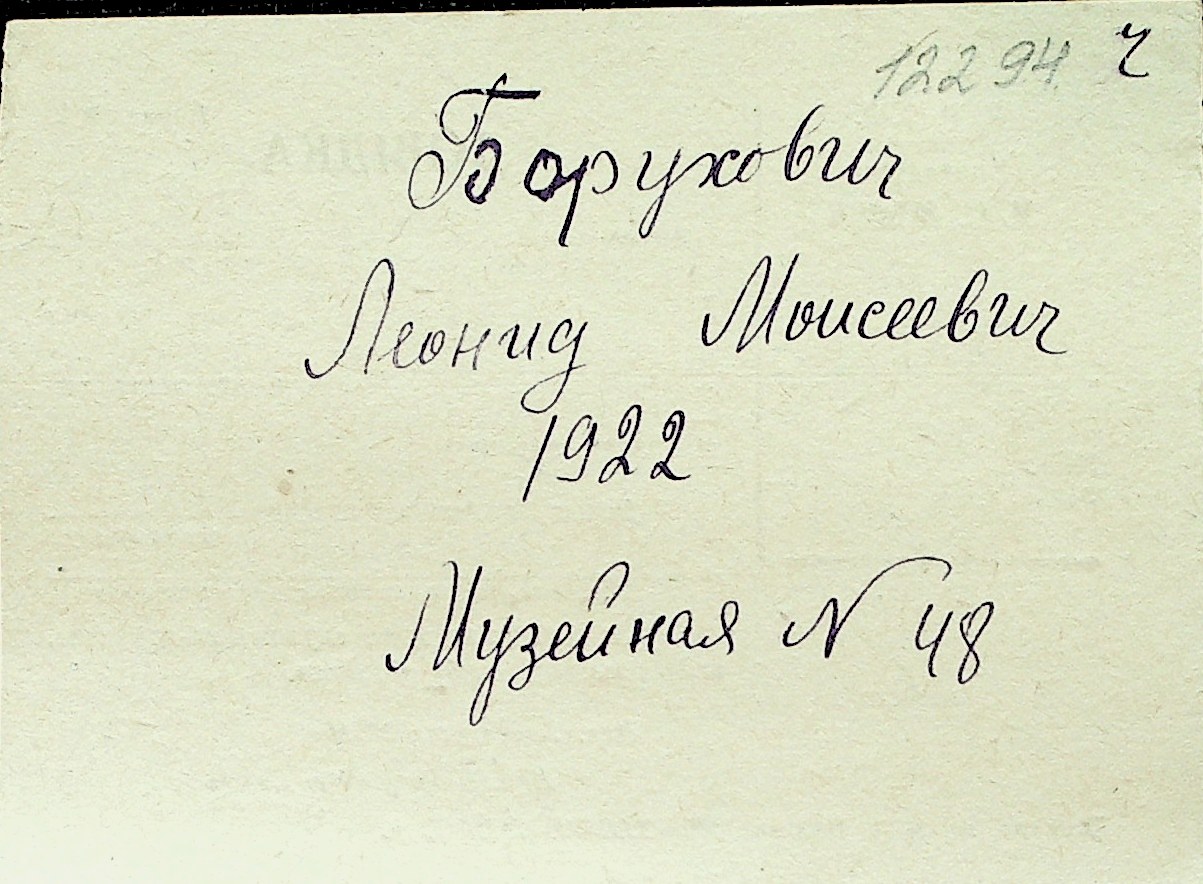 12294 ч
Борухович
Леонид Моисеевич
1922
Музейная N 48